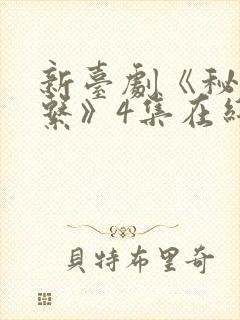 新臺劇《秘
繫》4集在
貝特布里奇